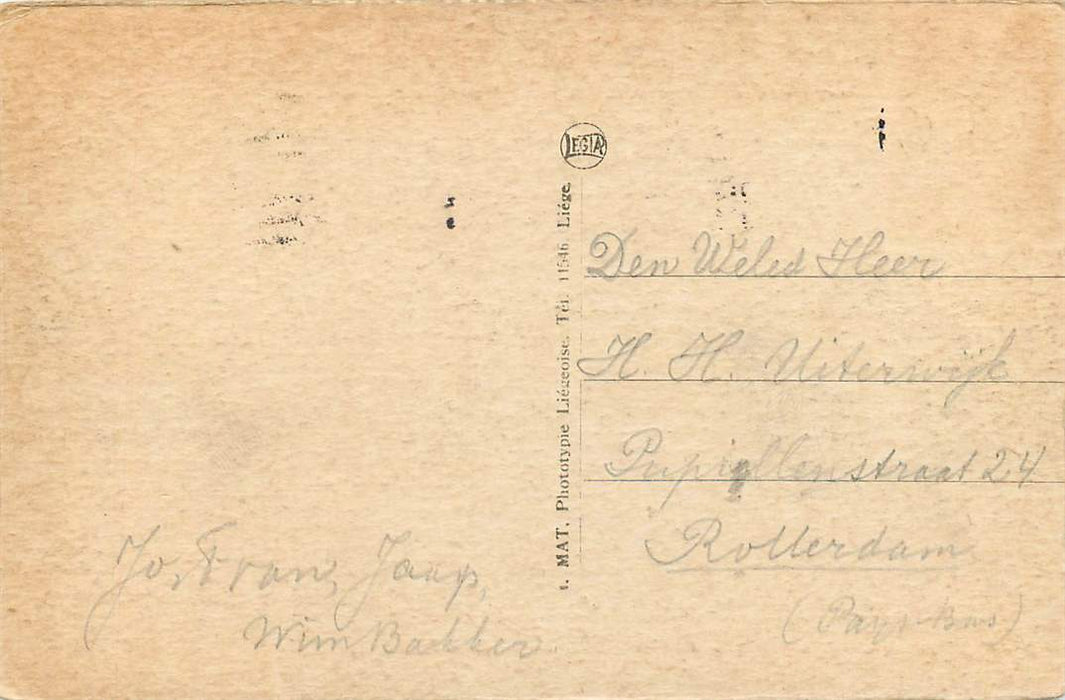 Jo, Frans, Jaap,
Wim Bakker
LEGIA
MAT. Phototypie Liégeoise. Tél. 11546 Liége.
Den Weled Heer
H. H. Uiterwijk
Pupillenstraat 24
Rotterdam
(Pays-Bas)